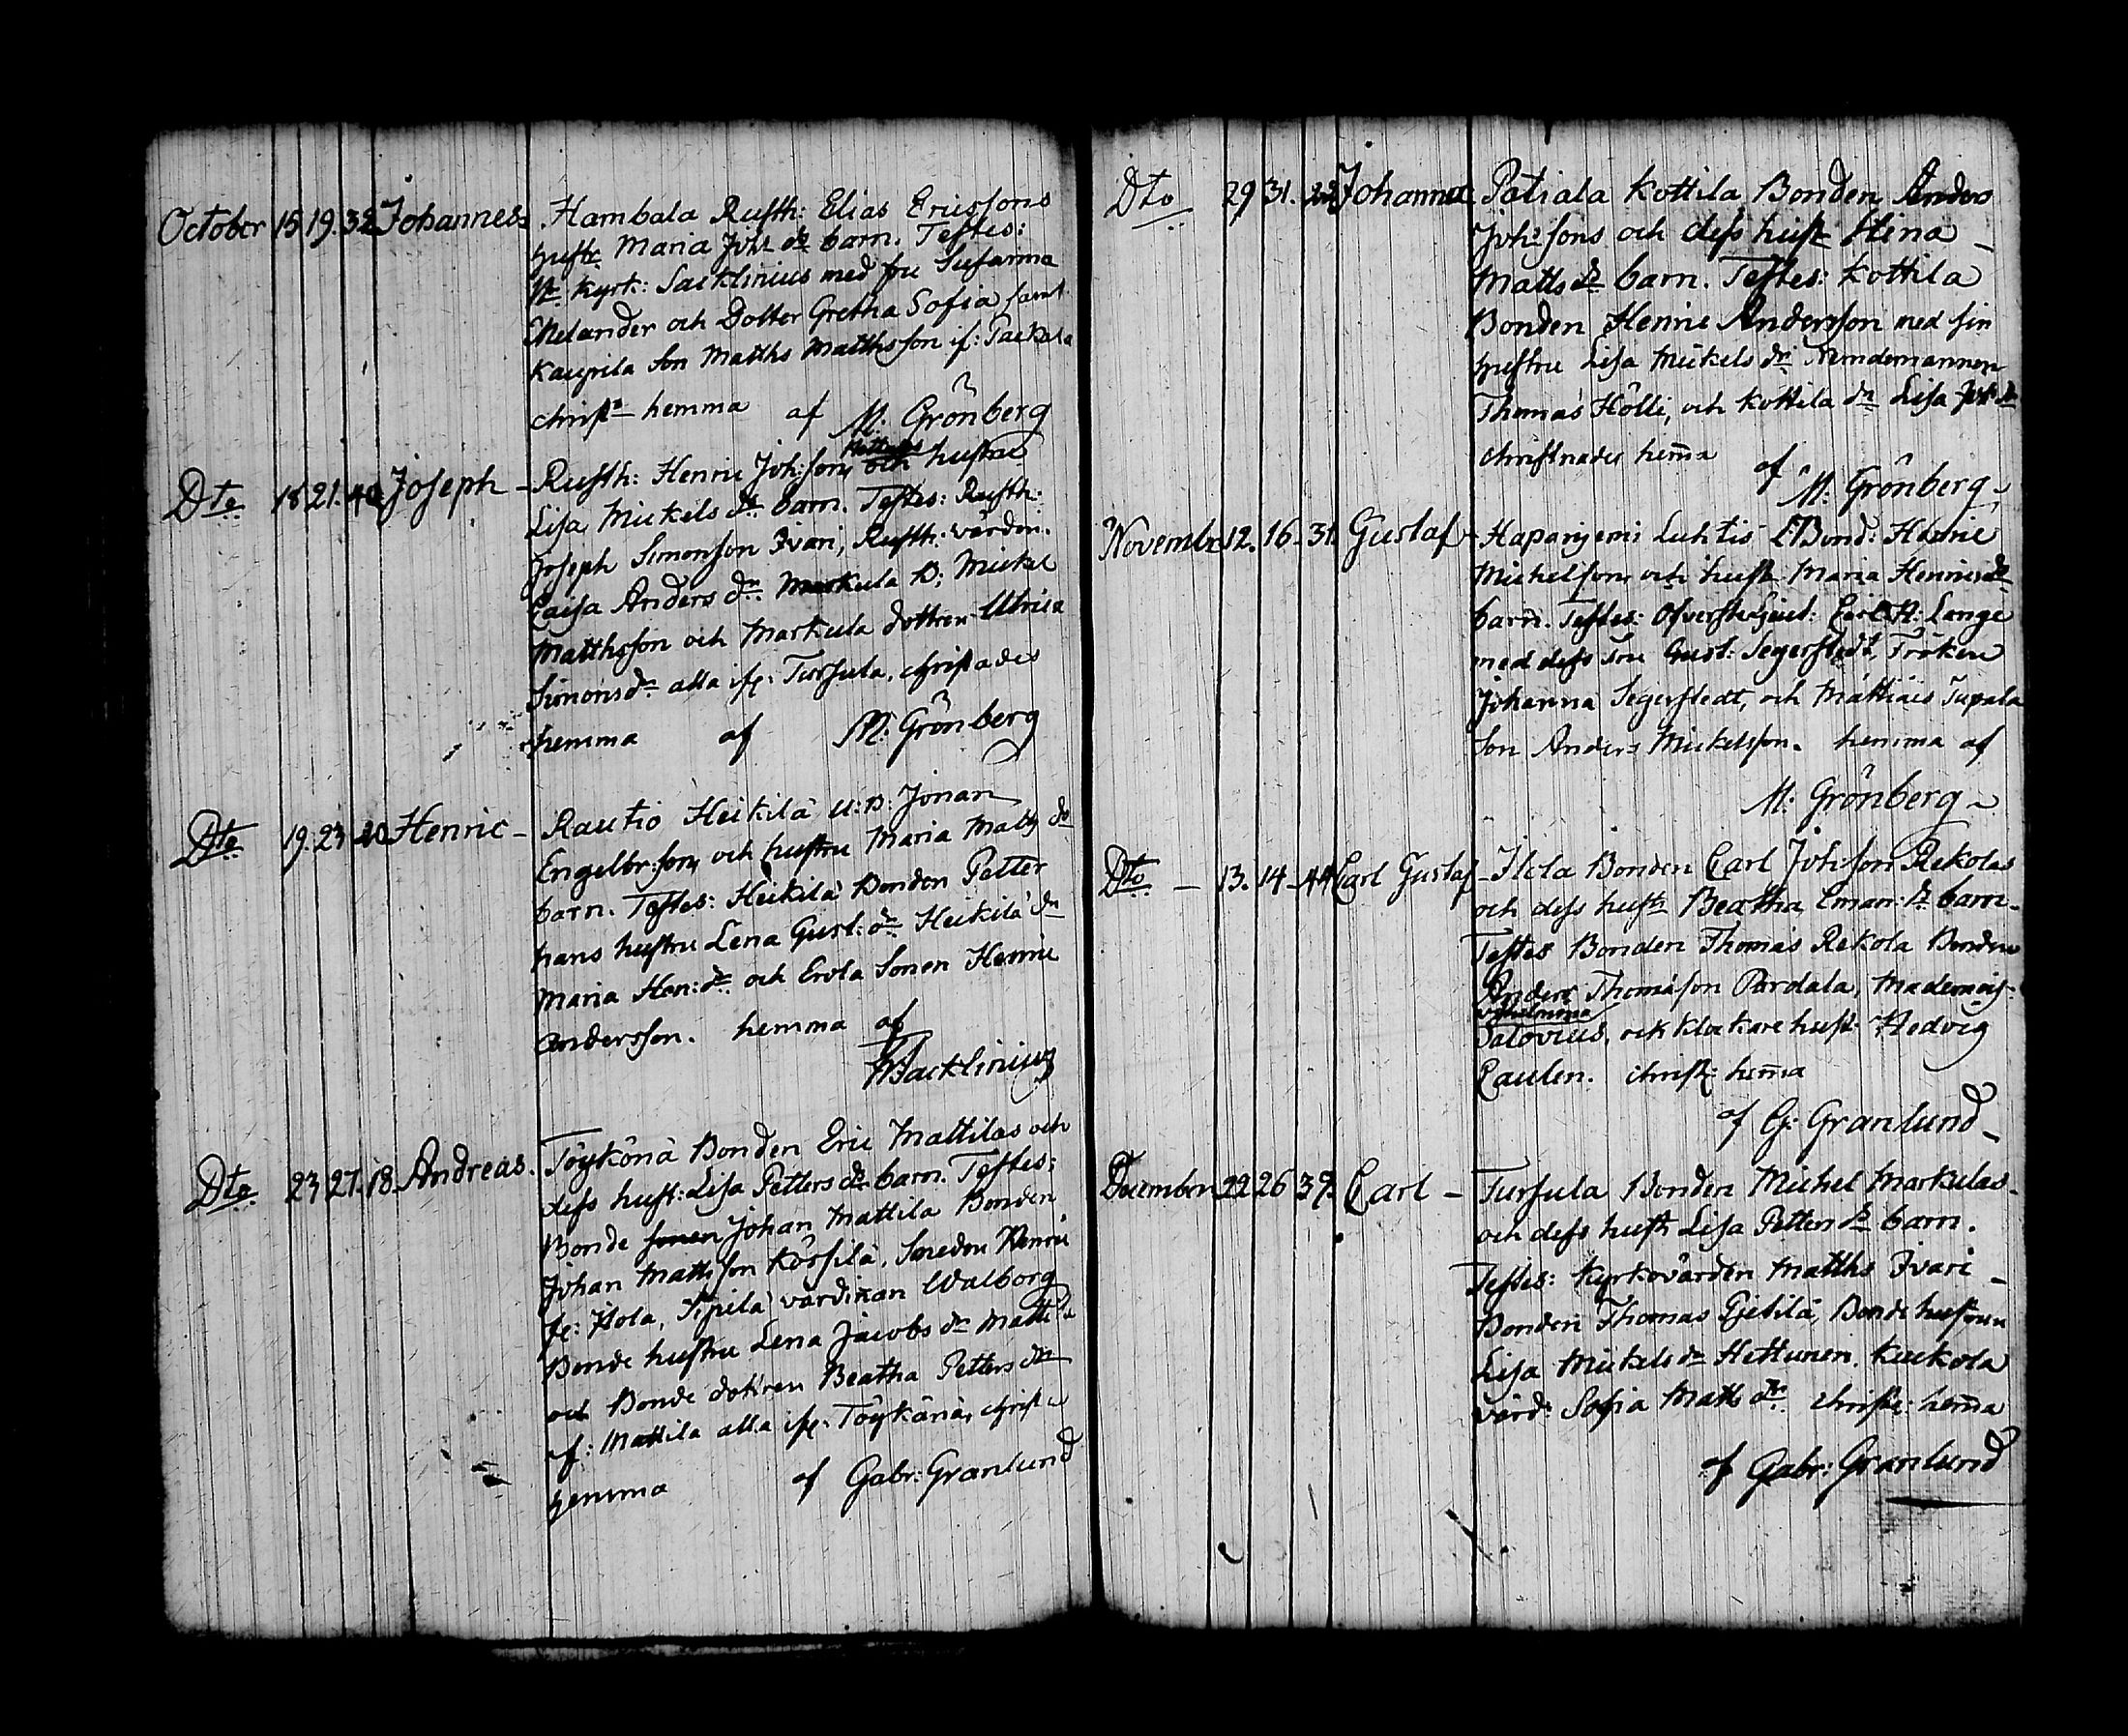 October 15 19. 32 Johannes. Hambala Rusth: Elias Ericssons
hustr Maria Joh: dr barn. Testes:
kyrk: Sacklinius med fru Susanna
Melander och Dotter Gretha Sofia samt
Kaupila Son Matths Matthsson if:
christn hemma af M: Grönberg
Dto 18 21. 40 Joseph - Rusth: Henric Joh:son och hustru
Lisa Mickels dr barn. Testes: Rusth:
Joseph Simonsson Ivari, Rusth: värdin.
Caisa Anders dr. Markula B: Mickel
Matthsson och Markula dottren Ulrica
Simons dr alla if: Tursula, christades
hemma af M: Grönberg
Dto 19. 23 40 Henric - Rautio Heikilä U: B: Johan
Engelbr:son och hustru Maria Matts dr
barn. Testes: Heikilä Bonden Petter
hans hustru Lena Gust: dr Heikilä dr
Maria Hen: dr och Erola Sonen Henric
Andersson. hemma af
Sacklinius
Dto 23 27. 18. Andreas. Töykönä Bonden Eric Mattilas och
dess hust: Lisa Petters dr barn. Testes:
Bonde sonen Johan Mattila Bonden
Johan Mattsson Körsilä, Smeden Henric
fr: Ilola, Sipilä värdinan Walborg
Bonde hustru Lena Jacobs dr Mattila
och Bonde dottren Beatha Petters dr
if: Mattila alla if: Töykänä, christ
hemma af Gabr: Granlund
Dto 29 31. 22 Johannes Patiala Kottila Bonden Anders
Joh:sons och dess hustr Stina
Matts dr barn. Testes: Kottila
Bonden Henric Andersson med sin
hustru Lisa Mickels dr Nemdemannen
Thomas Hölli, och Kottila dr Lisa Joh: dr
christnades hem̄a af
M: Grönberg
Novembr 12. 16. 31. Gustaf - Hapaniemi Luhtis LBond: Henric
Michelson och hustr Maria Henrics dr
barn. Testes: Öfverste Lieut: Carl H: Lange
med dess Fru Gust: Segerstedt, Fröken
Johanna Segerstedt, och Mattiais Tupala
Son Anders Mickelsson. hemma af
M: Grönberg
Dto - 13. 14 - 44 Carl Gustaf - Ilola Bonden Carl Joh:son Rekolas
och dess hustr Beatha Eman: dr barn.
Testes Bonden Thomas Rekola Bonden
Anders Thomasson Pardala, Mademois:
Wilhelmina
Salovius, och Klockare hust: Hedvig
Caulen. christ: hem̄a
af G: Granlund
December 22 26 39. Carl - Tursula Bonden Michel Markulas
och dess hustr Lisa Petters dr barn.
Testes: Kyrkovärden Matths Ivari
Bonden Thomas Bonde hustrun
Lisa Mickels dr Hettunen. Kuckola
värd: Sofia Matts dr. christ: hem̄a
af Gabr: Granlund